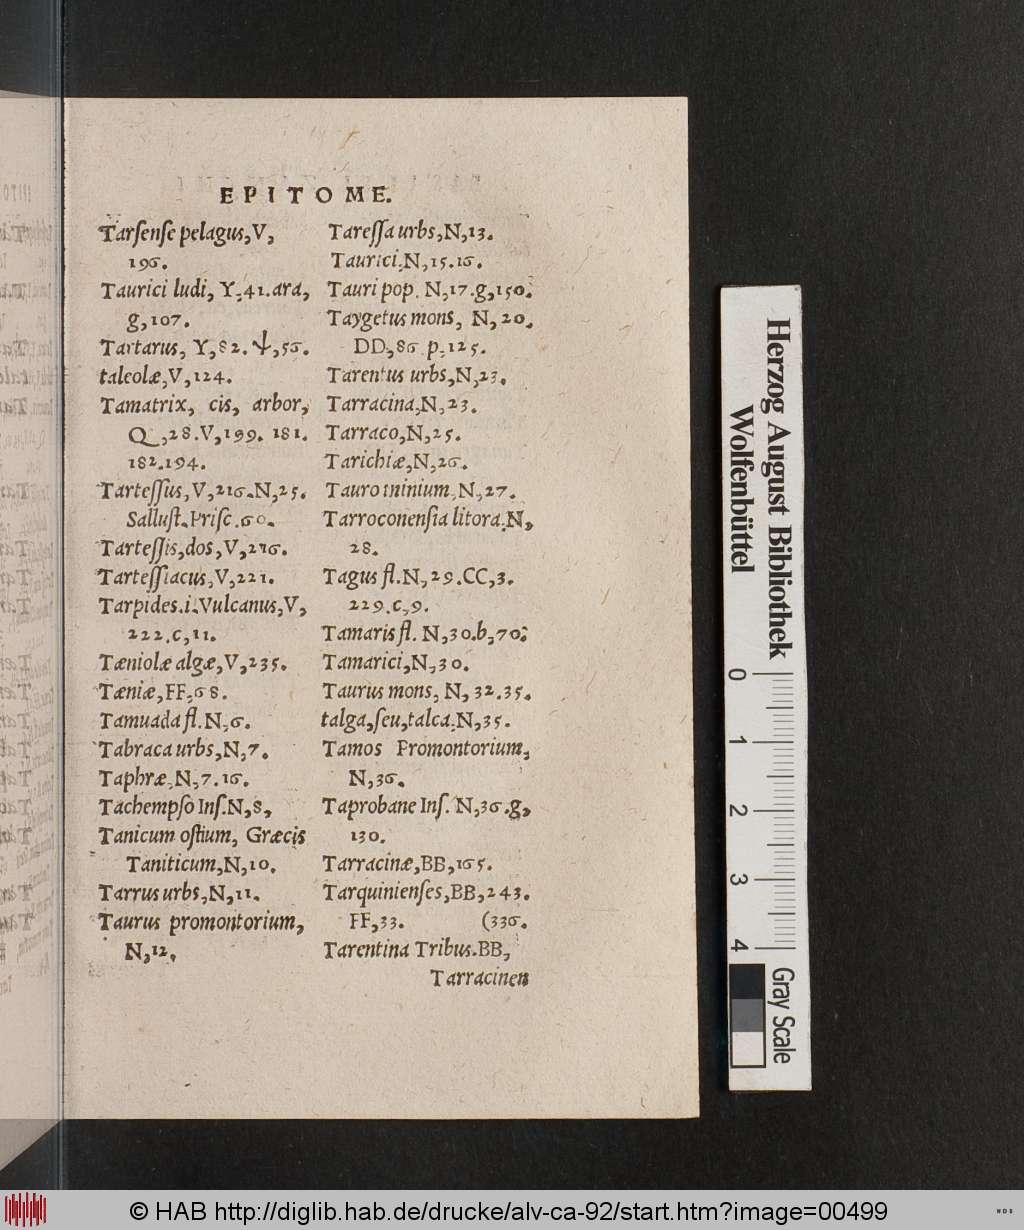 EPITOME.
Tarſenſe pelagus, V,
196.
Taurici ludi, Y, 41. ara,
g, 107.
Tartarus, Y, 82. Ψ, 56.
taleolæ, V, 124.
Tamatrix, cis, arbor,
Q, 28. V, 199. 181.
182. 194.
Tarteſſus, V, 216. N, 25.
Salluſt. Priſc. 60.
Tarteſſis, dos, V, 216.
Tarteſſiacus, V, 221.
Tarpides. i. Vulcanus, V,
222. c, 11.
Tæniolæ algæ, V, 235.
Tæniæ, FF, 68.
Tamuada fl. N, 6.
Tabraca urbs, N, 7.
Taphræ, N, 7. 16.
Tachempſo Inſ. N, 8,
Tanicum oſtium, Græcis
Taniticum, N, 10.
Tarrus urbs, N, 11.
Taurus promontorium,
N, 12.
Tareſſa urbs, N, 13.
Taurici, N, 15. 16.
Tauri pop. N, 17. g, 150.
Taygetus mons, N, 20.
DD, 86 p, 125.
Tarentus urbs, N, 23.
Tarracina, N, 23.
Tarraco, N, 25.
Tarichiæ, N, 26.
Tauro minium, N, 27.
Tarroconenſia litora. N,
28.
Tagus fl. N, 29. CC, 3.
229. c, 9.
Tamaris fl. N, 30. b, 70.
Tamarici, N, 30.
Taurus mons, N, 32. 35.
talga, ſeu, talca. N, 35.
Tamos Promontorium,
N, 36.
Taprobane Inſ. N, 36. g,
130.
Tarracinæ, BB, 165.
Tarquinienſes, BB, 243.
FF, 33. (336.
Tarentina Tribus. BB,
Tarracinen
Herzog August Bibliothek
Wolfenbüttel
0 1 2 3 4
Gray Scale
© HAB http://diglib.hab.de/drucke/alv-ca-92/start.htm?image=00499